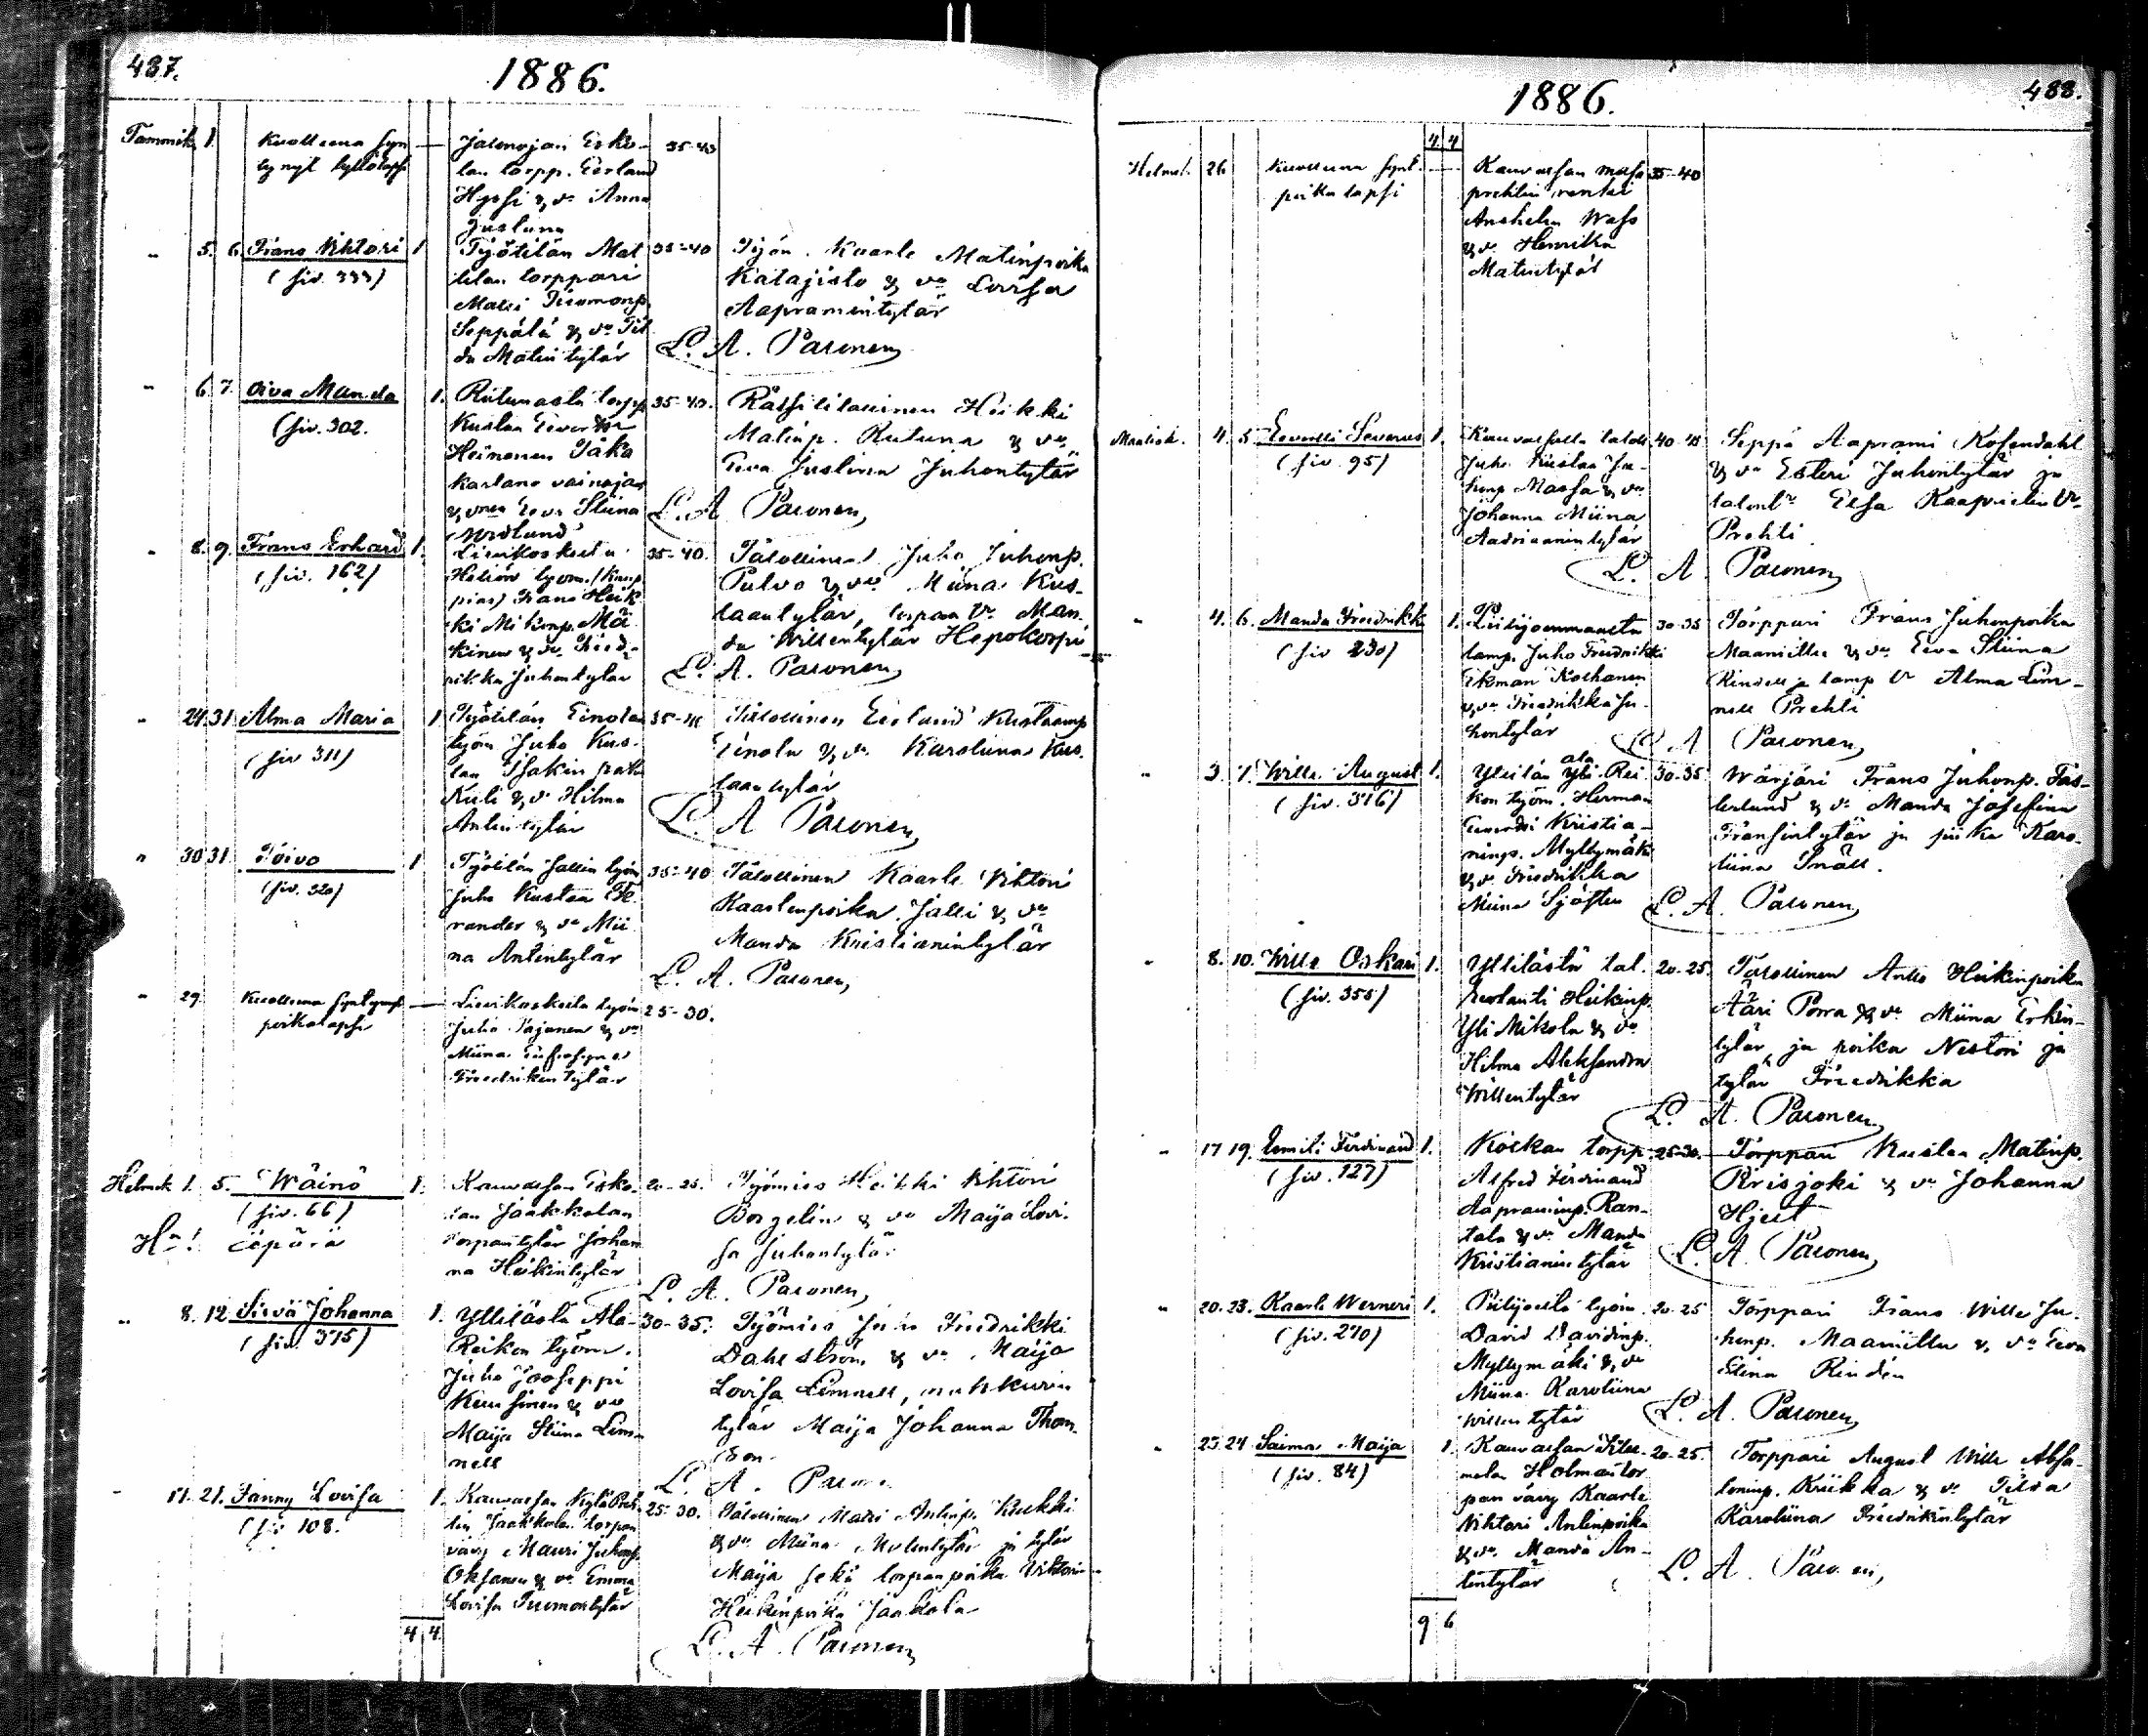 487.
1886.
Tammik. 1.
Kuolleena syn
tynyt tyttölapsi
Jalonojan Esko-
lan torpp. Eerland
Hyssi & v:o Anna
Justina
35-40
" 5. 6. Frans Viktori 1
(siv. 333)
Työtilän Mat
tilan torppari
Matti Tuomonp.
Seppälä & v:o Til
da Matintytär
35-40
Työm. Kaarle Matinpoika
Katajisto & v:o Lovisa
Aapramintytär
L. A. Paronen
" 6. 7. Oiva Manda 1.
(siv. 302.
torpp.
Kustaa
Heinonen
& v:o Eeva Stiina
Nordlund
35-40.
Heikki
Matinp. Rutuna & v:o
Eeva Justiina Juhontytär
L. A. Paronen
" 8. 9. Frans Erhard 1.
(siv. 162)
Frans Heik
ki Mikonp. Mä
kinen & v:o Fred-
rikka Juhontytär
35-40.
Talollinen Juho Juhonp.
& v:o Miina Kus-
taantytär, torpan v:o Man-
da Willentytär Hepokorpi
L. A. Paronen
" 24. 31. Alma Maria 1
(siv 311)
Työtilän Einolan
työm Juho Kus-
taa
& v:o Hilma
Antintytär
35-40
Talollinen Eerland Kustaanp
Einola & v:o Karoliina Kus-
taantytär
L. A. Paronen
" 30 31. Toivo 1
(siv. 320)
Työtilän Jallin työm
Juho Kustaa
& v:o Mii
na Antintytär
35-40
Talollinen Kaarle Viktori
Kaarlenpoika Jalli & v:o
Manda Kristianintytär
L. A. Paronen
" 29.
Kuolleena syntynyt
poikalapsi
työm
Juho Pajunen & v:o
Miina
Fredrikintytär
25-30.
Helmik 1. 5. Wäinö 1.
(siv. 66)
H:n! äpärä
Kauvatsan Esko-
lan Jaakkolan
torpantytär Johan
na Heikintytär
20-25.
Työmies Heikki Viktori
Borgelin & v:o Maija Lovi-
sa Juhontytär
L. A. Paronen
" 8. 12. Siviä Johanna 1.
(siv. 375)
Yttilästä Ala-
Reikon työm.
Juho Jooseppi
& v:o
Maija Stiina Lin-
nell
30-35.
Työmies Juho Fredrikki
Dahlström & v:o Maija
Lovisa Linnell, nahkurin
tytär Maija Johanna Thom-
son
L. A. Paronen
" 17. 21. Fanny Lovisa 1.
(siv 108.
Kauvatsan
Jaakkolan torpan
vävy Mauri Juhonp.
Oksanen & v:o Emma
Lovisa Tuomontytär
25-30.
Talollinen Matti Antinp. Kukki
& v:o Miina ja tytär
Maija sekä torpanpoika Viktori
Heikinpoika Jaakkola
L. A. Paronen
4 4
1886.
488.
4 4
Helmik. 26
Kuolleena synt.
poikalapsi
Kauvatsan
prehtin renki
Anshelm Wass
& v:o Henrika
Matintytär
35-40
Maalisk. 4. 5. Eevertti Severus 1.
(siv. 95)
Kauvatsalta taloll
Juho Kustaa Ju-
honp Massa & v:o
Johanna Miina
Aadriaanintytär
40-45
Seppä Aaprami Rosendahl
& v:o Esteri Juhontytär ja
Elsa Kaaprielin
Prehti
L. A. Paronen
" 4. 6. Manda Fredrikk 1.
(siv 230)
Piilijoenmaasta
lamp. Juho Fredrikki
Ekman
& v:o Fredrikka Ju-
hontytär
30-35
Torppari Frans Juhonpoika
Maanitta & v:o Eeva Stiina
Rindell ja lamp v:o Alma Lin-
nell Prehti
L. A. Paronen
" 3. 7. Wille August 1.
(siv. 376)
ala
Yttilän Yli Rei
kon työm. Herman
Kristia-
ninp. Myllymäki
& v:o Fredrikka
Miina Sjösten
30-35
Wärjäri Frans Juhonp. Fas-
terlund & v:o Manda Josefina
Fransintytär ja piika Karo-
liina Snäll.
L. A. Paronen
" 8. 10. Wille Oskari 1.
(siv. 355)
Yttilästä tal.
Heikinp.
Yli Mikola & v:o
Hilma Aleksandra
Willentytär
20-25.
Talollinen Antto Heikinpoika
Ääri Porra & v:o Miina Erkin-
tytär, ja poika Nestori ja
tytär Fredrikka
L. A. Paronen
" 17 19. Eemili Ferdinand 1.
(siv. 127)
torpp
Alfred Ferdinand
Aapraminp. Ran-
tala & v:o Manda
Kristianintytär
25-30.
Torppari Kustaa Matinp.
Risijoki & v:o Johanna
Hjelt
L. A. Paronen
" 20. 23. Kaarle Werneri 1.
(siv. 270)
Piilijoelta työm.
David Davidinp.
Myllymäki & v:o
Miina Karoliina
Willentytär
20-25
Torppari Frans Wille Ju-
honp. Maanitta & v:o Eeva
Stiina Rindén
L. A. Paronen
" 23. 24. Saima Maija 1.
(siv. 84)
Kauvatsan
Holman tor
pan vävy Kaarle
Viktori Antinpoika
& v:o Manda An-
tintytär
20-25.
Torppari August Wille Absa-
loninp. Krikka & v:o Tilda
Karoliina Fredrikintytär
L. A. Paronen
9 6